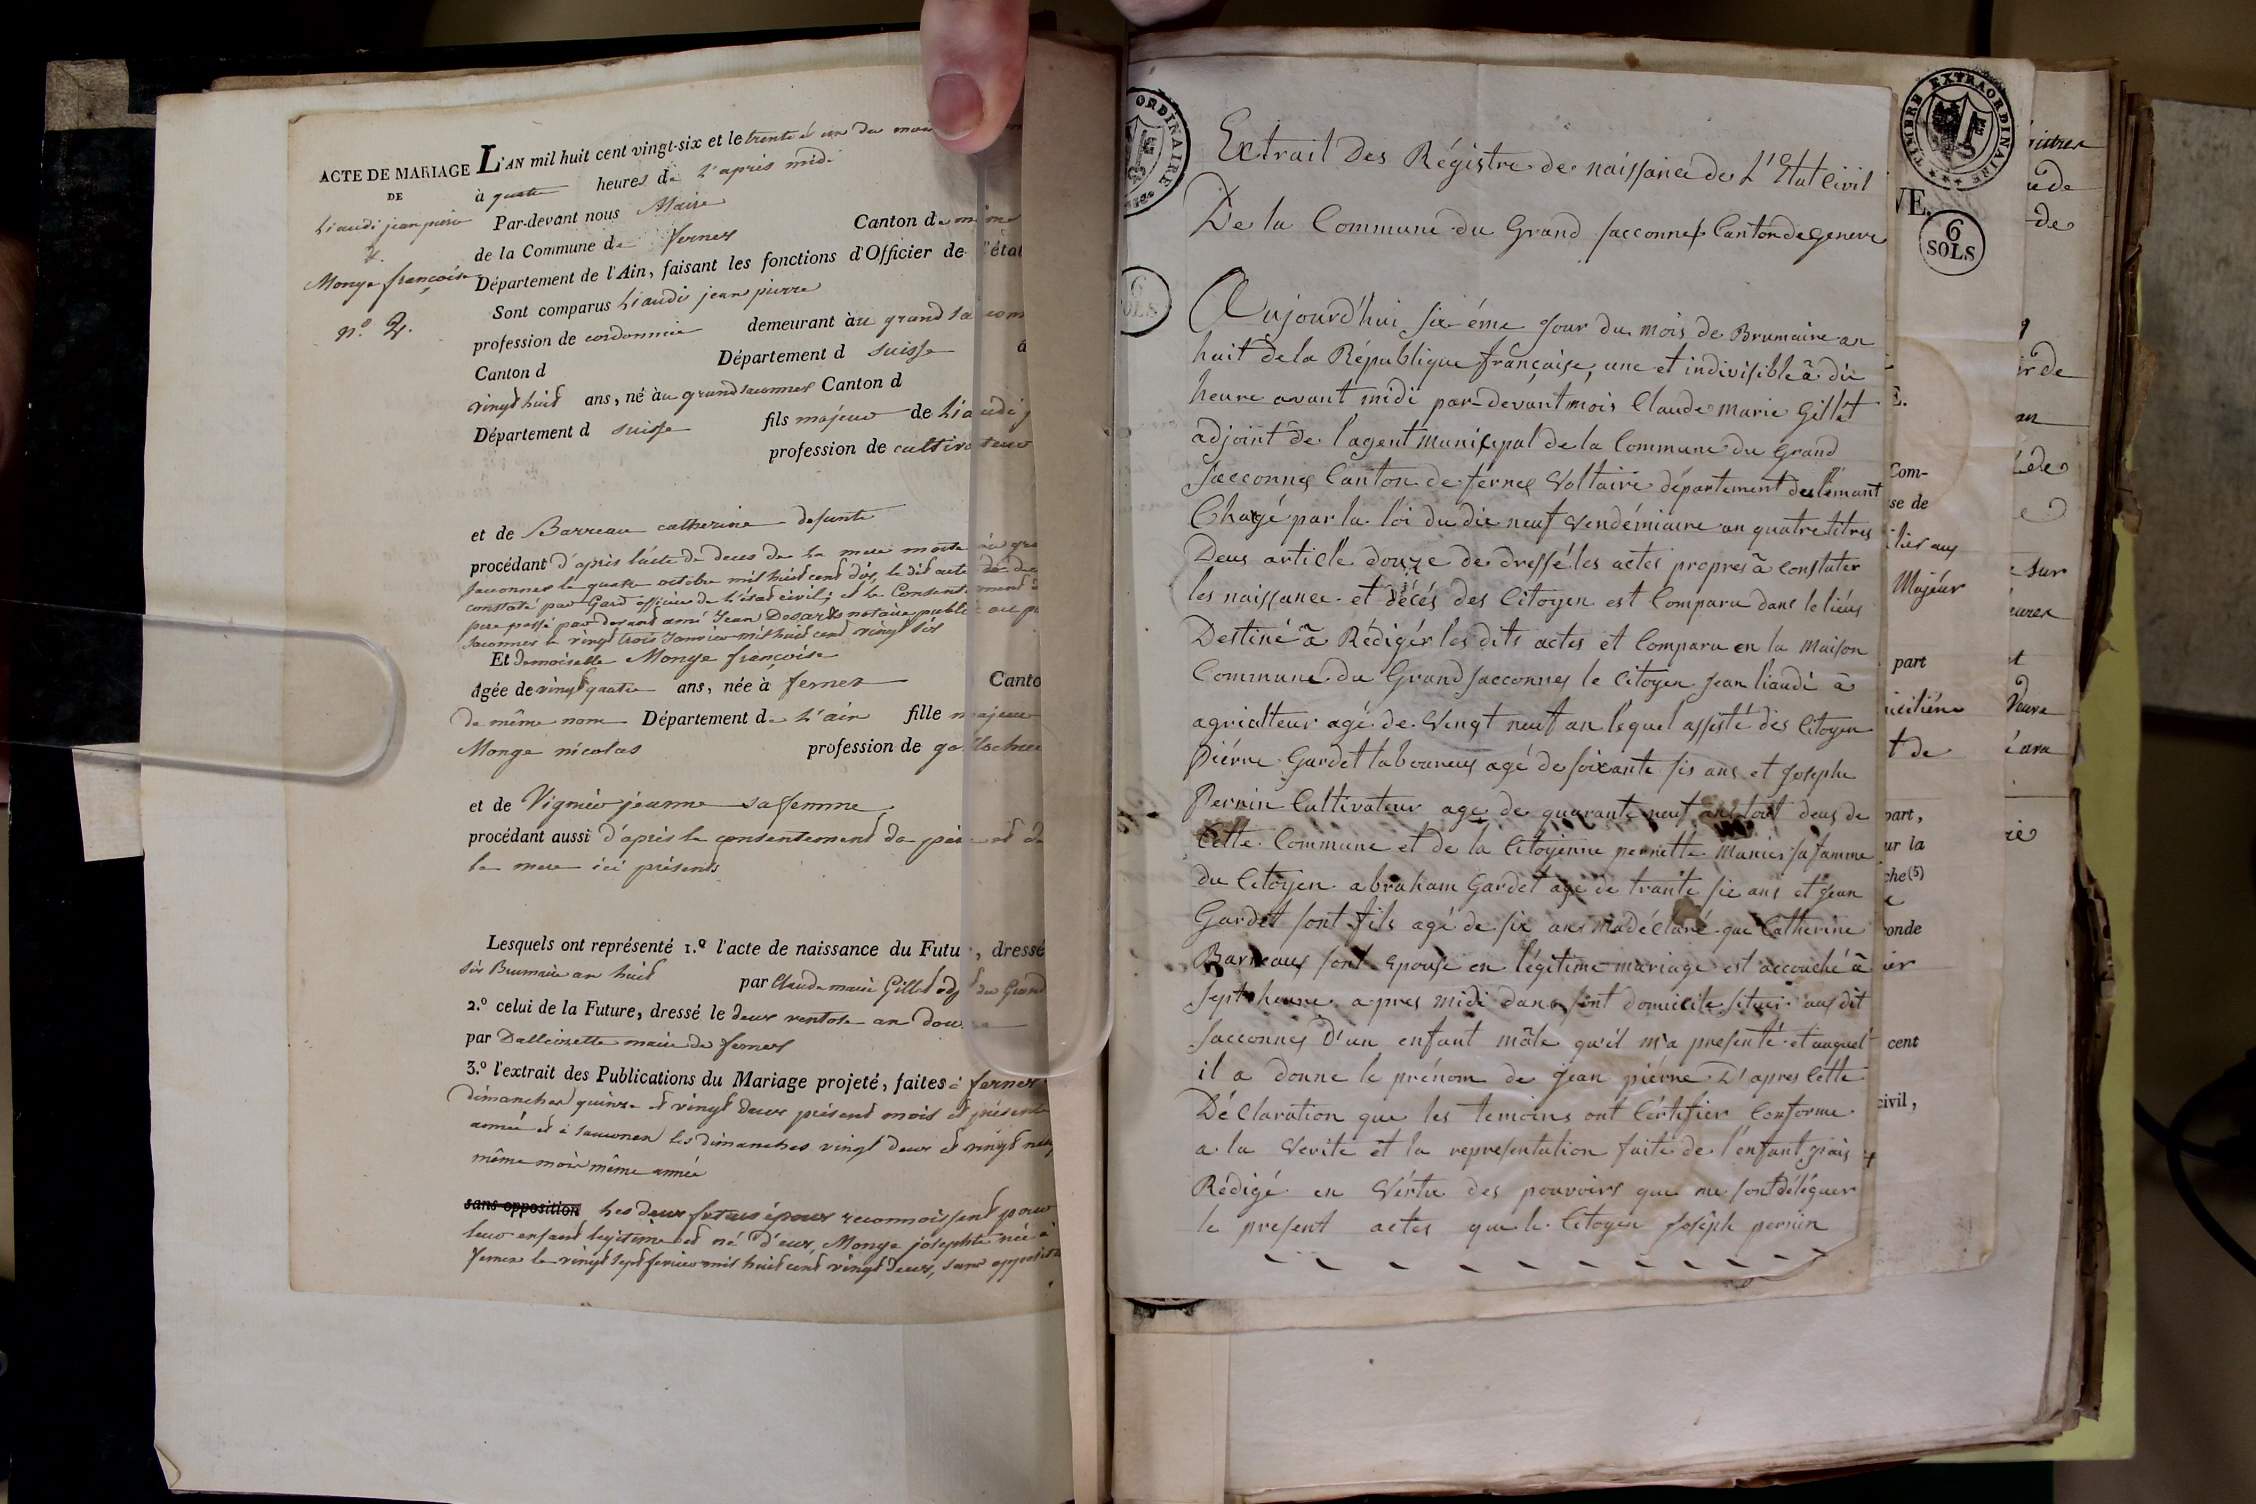 ACTE DE MARIAGE
DE
Liaudi jean pierre
&
Monge françoise
n.º 2.
L'AN mil huit cent vingt-six et le trente et un du mois
à quatre heures de l'après midi
Par-devant nous Maire
de la Commune de Fernex Canton de même
Département de l'Ain, faisant les fonctions d'Officier de l'état
Sont comparus Liaudi jean pierre
profession de cordonnier demeurant àu grand Saconn
Canton d Département d suisse a
vingt huit ans, né àu grand saconnex Canton d
Département d suisse fils majeur de Liaudi j
profession de cultivateur
et de Barreau catherine defunte
procédant d'après l'acte de deces de la mere morte au gra
saconnex le quatre octobre mil huit cent dix, le dit acte de dec
constaté par Gard officier de l'état civil; et le Consentement d
pere passé par devant ami Jean notaire public au
saconnex le vingt trois Janvier mil huit cent vingt six
Et demoiselle Monge françoise
âgée de vingt quatre ans, née à fernex Canto
de même nom Département de L'ain fille majeure
Monge nicolas profession de
et de Vignier jeanne sa femme
procédant aussi d'après le consentement du père et de
la mere ici présents
Lesquels ont représenté 1.º l'acte de naissance du Futur, dressé
six Brumaire an huit par Claude marie Gillet adj du Grand
2.º celui de la Future, dressé le deux ventose an douze
par Dalloisette maire de fernex
3.º l'extrait des Publications du Mariage projeté, faites à fernex
dimanches quinze et vingt deux présent mois et présente
année et à saconnex les dimanches vingt deux et vingt neuf
même mois même année
sans opposition Les deux futurs époux reconnoissent pour
leur enfant légitime et né d'eux, Monge josephte née à
fernex le vingt sept fevrier mil huit cent vingt deux, sans opposition
ORDINAIRE
6
SOLS
Extrait Des Régistre de naissance de L'Etat Civil
De la Commune du Grand Sacconnex Canton de Geneve
Aujourd'hui six-éme Jour du mois de Brumaire an
huit de la République française, une et indivisible à dix
heure avant midi par-devant mois Claude Marie Gillet
adjoint de l'agent municipal de la Commune du Grand
Sacconnex Canton de fernex Voltaire département du lemant
Chargé par la loi du dix neuf Vendémiaire an quatre titres
Deux article douze de dressé les actes propres à constater
les naissance et décés des Citoyen est Comparu dans le liéux
Destiné à Rédigér les dits actes et Comparu en la Maison
Commune du Grand Sacconnex le Citoyen Jean liaudi à
agriculteur agé de Vingt neuf an lequel assisté dès Citoyen
Piérre Gardet laboureux agé de soixante six ans et Joseph
Pernin Cultivateur agé de quarante neuf ans tout deux de
Cette Commune et de la Citoyenne pernette Munier sa famme
du Citoyen abraham Gardet agé de trante six ans et Jean
Gardet sont fils agé de six ans ma déClaré que Catherine
Barreaux sont Epouse en légitime mariage est accouché à
sept heure apres midi dans sont domicile situés aux dit
Sacconnex D'un enfant mâle qu'il m'a presenté et auquel
il a donne le prénom de Jean piérre D'apres Cette
DéClaration que les temoins ont Cértifier Conforme
a la Verite et la representation faite de l'enfant j'iais
Rédigé en Vértu des pouvoirs que me sont déléguer
le present actes que le Citoyen Josêph pernin
TIMBRE EXTRAORDINAIRE
VE.
6
SOLS
E.
Com-
se de
Majéur
part
t de
part,
ur la
che (5)
conde
cent
civil,